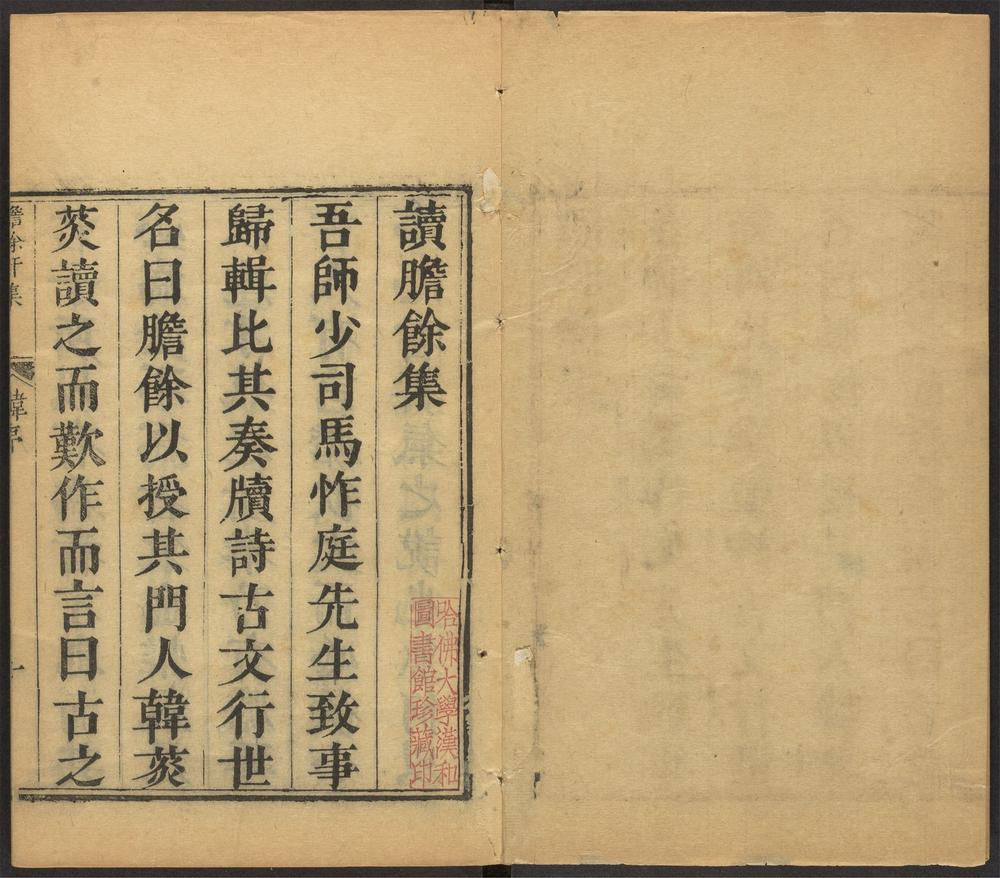 讀膽餘集
吾師少司馬怍庭先生致事
歸輯比其奏牘詩古文行世
名曰膽餘以授其門人韓菼
菼讀之而歎作而言曰古之
韓序
一
哈佛大學漢和
圖書館珍藏印